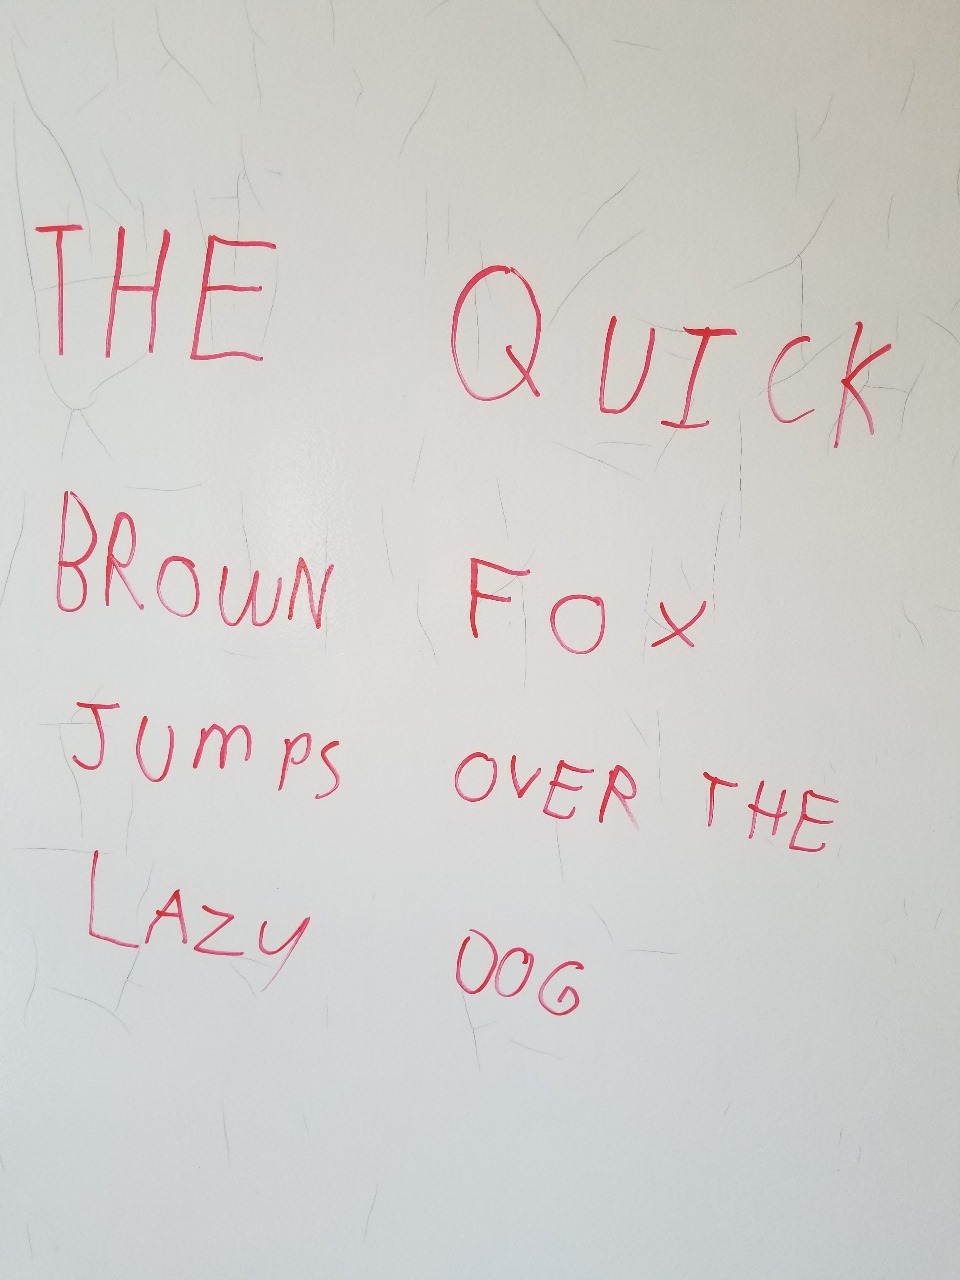 THE QUICK
BROWN FOX
JUMPS OVER THE
LAZY DOG